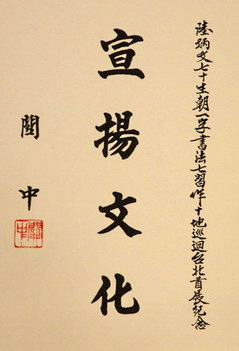 陸炳文七十生朝一字書法七習作十地巡迴台北首展紀念
宣揚文化
關中